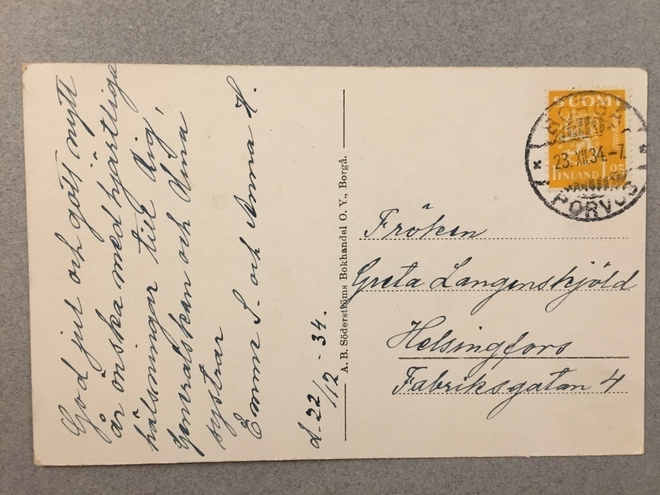 God jul och gott nytt
år önska med hjärtliga
hälsningar till Dig,
Generalskan och Dina
systrar
Emmi S. och Anna H.
d. 22/12 - 34.
A. B. Söderströms Bokhandel O. Y., Borgå.
SUOMI
FINLAND 1 25
BORGÅ
23.XII.34.-7.
PORVOO
Fröken
Greta Langenskjöld
Helsingfors
Fabriksgatan 4